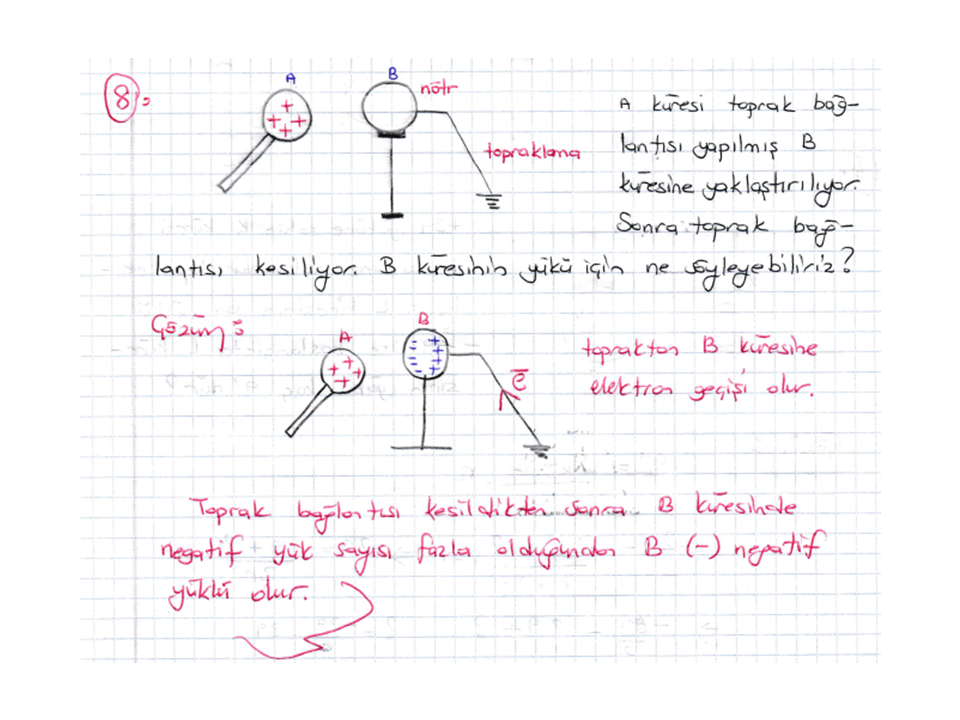 8.
A
B
nötr
topraklama
A küresi toprak bağ-
lantısı yapılmış B
küresine yaklaştırılıyor.
Sonra toprak bağ-
lantısı kesiliyor. B küresinin yükü için ne söyleyebiliriz?
Çözüm:
A
B
topraktan B küresine
elektron geçişi olur.
e
Toprak bağlantısı kesildikten sonra B küresinde
negatif yük sayısı fazla olduğundan B (-) negatif
yüklü olur.